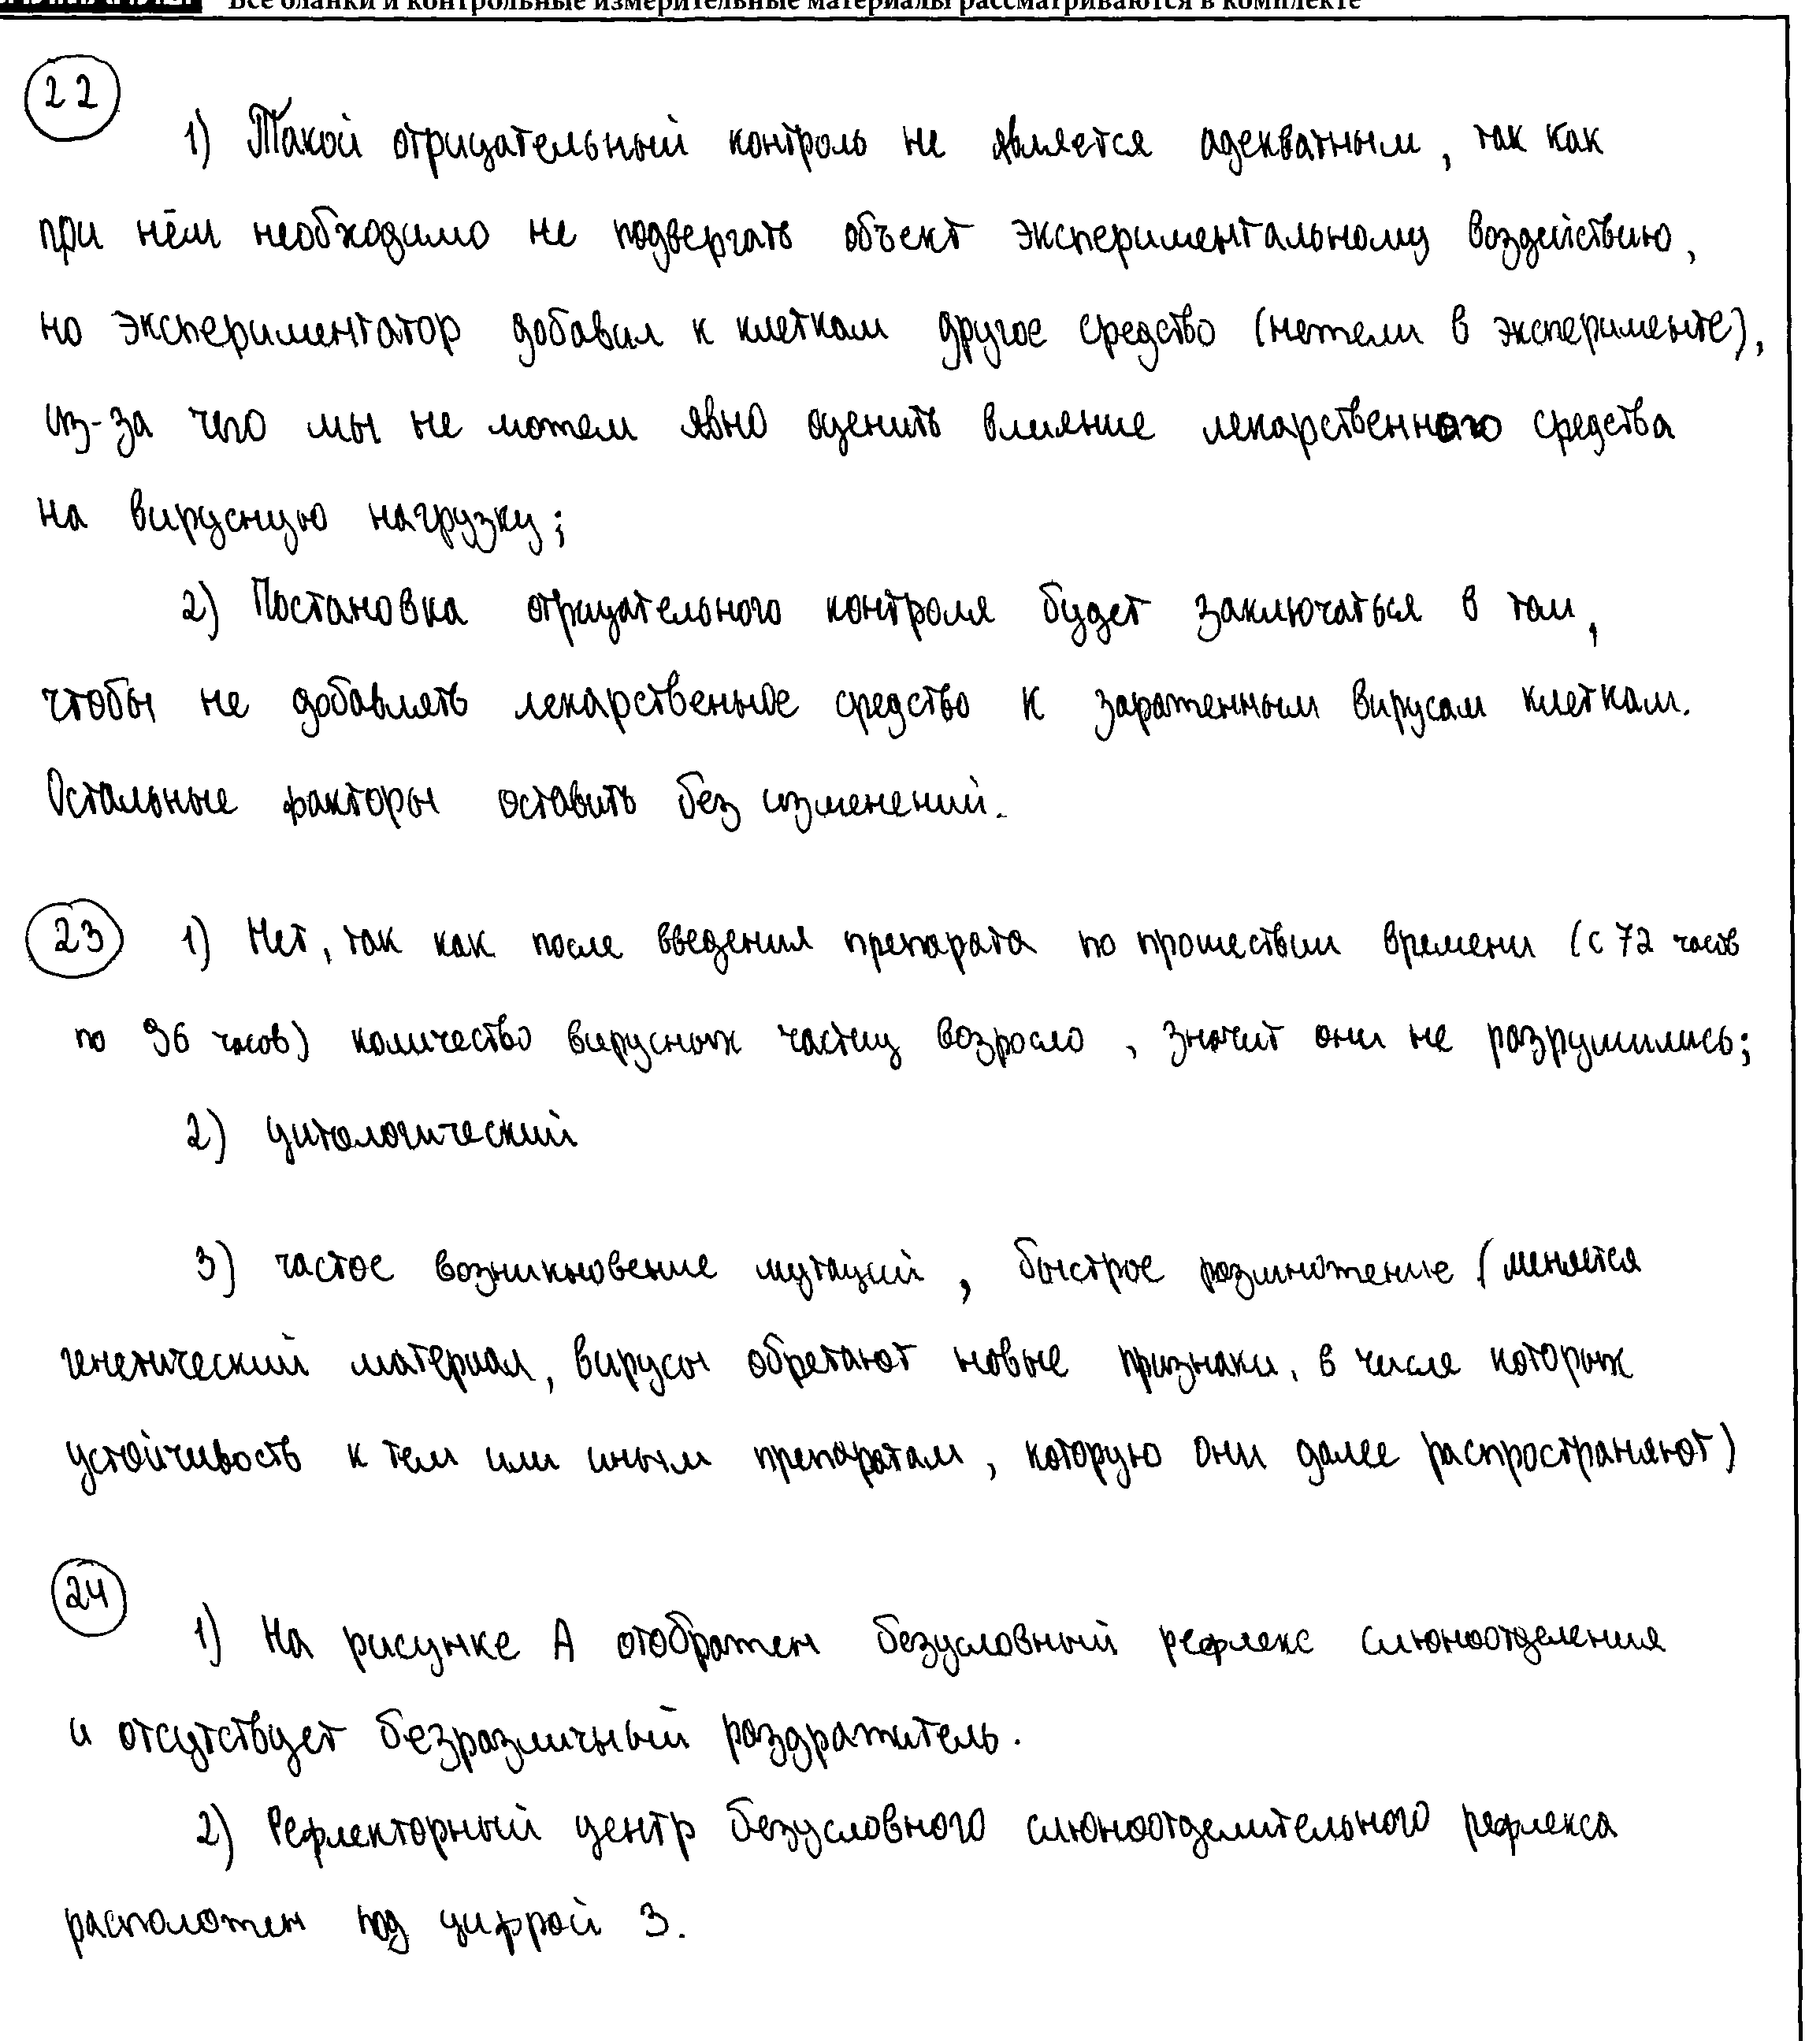 Все бланки и контрольные измерительные материалы рассматриваются в комплекте
22
1) Такой отрицательный контроль не является адекватным, так как
при нём необходимо не подвергать объект экспериментальному воздействию,
но экспериментатор добавил к клеткам другое средство (нежели в эксперименте),
из-за чего мы не можем явно оценить влияние лекарственного средства
на вирусную нагрузку;
2) Постановка отрицательного контроля будет заключаться в том,
чтобы не добавлять лекарственное средство к зараженным вирусам клеткам.
Остальные факторы оставить без изменений.
23 1) Нет, так как после введения препарата по прошествии времени (с 72 часов
по 96 часов) количество вирусных частиц возросло, значит они не разрушились;
2) цитологический
3) частое возникновение мутаций, быстрое размножение (меняется
генетический материал, вирусы обретают новые признаки, в числе которых
устойчивость к тем или иным препаратам, которую они далее распространяют)
24
1) На рисунке А отображен безусловный рефлекс слюноотделения
и отсутствует безразличный раздражитель.
2) Рефлекторный центр безусловного слюноотделительного рефлекса
расположен под цифрой 3.